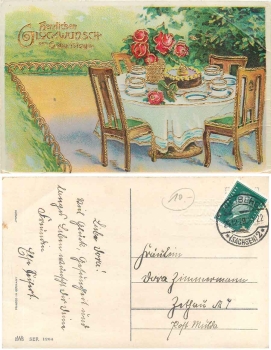 Herzlichen
Glückwunsch
zum Geburtstage
Liebe Dora!
Viel Glück, Gesundheit und
langes Leben wünscht dir Deine
Freundin
Fräulein
Dora Zimmermann
Zethau No 7
Post Mulda
10.-
(SACHSEN)
SER. 1044